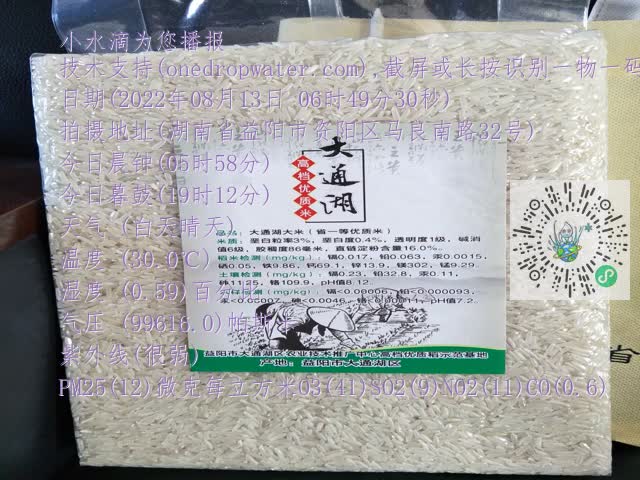 小水滴为您播报
技术支持(onedropwater.com),截屏或长按识别一物一码
日期(2022年08月13日 06时49分30秒)
拍摄地址(湖南省益阳市资阳区马良南路32号)
今日晨钟(05时58分)
今日暮鼓(19时12分)
天气 (白天晴天)
温度 (30.0℃)
湿度 (0.59)百
气压 (99618.0)帕斯卡
紫外线(很弱)
PM25(12)微克每立方米O3(41)SO2(9)NO2(11)CO(0.6)
大通湖
高档优质米
品名：大通湖大米（省一等优质米）
米质：垩白粒率3%，垩白度0.4%，透明度1级，碱消
值6级，胶稠度86毫米，直链淀粉含量16.0%。
稻米检测（mg/kg）：镉0.017，铅0.063，汞0.0015，
硒0.05，铁9.86，钙69.1，锌13.9，镁302，锰9.29。
土壤检测（mg/kg）：镉0.23，铅32.8，汞0.11，
砷11.25，铬109.9，pH值8.12。
益阳市大通湖区农业技术推广中心高档优质稻示范基地
产地：益阳市大通湖区